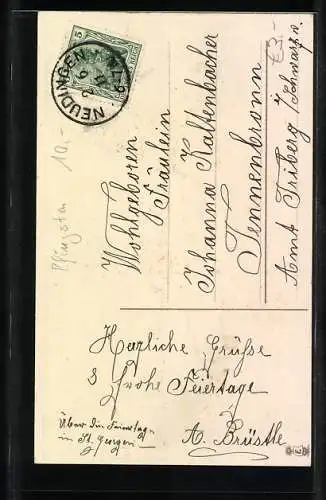 5
NEUDINGEN
Wohlgeboren
Fräulein
Johanna Kaltenbacher
Tennenbronn
Amt Triberg / Schwarzw.
£3.-
10.-
Pfingsten
Herzliche Grüße
& frohe Feiertage
A. Brüstle
Über die Feiertage
in St. Georgen